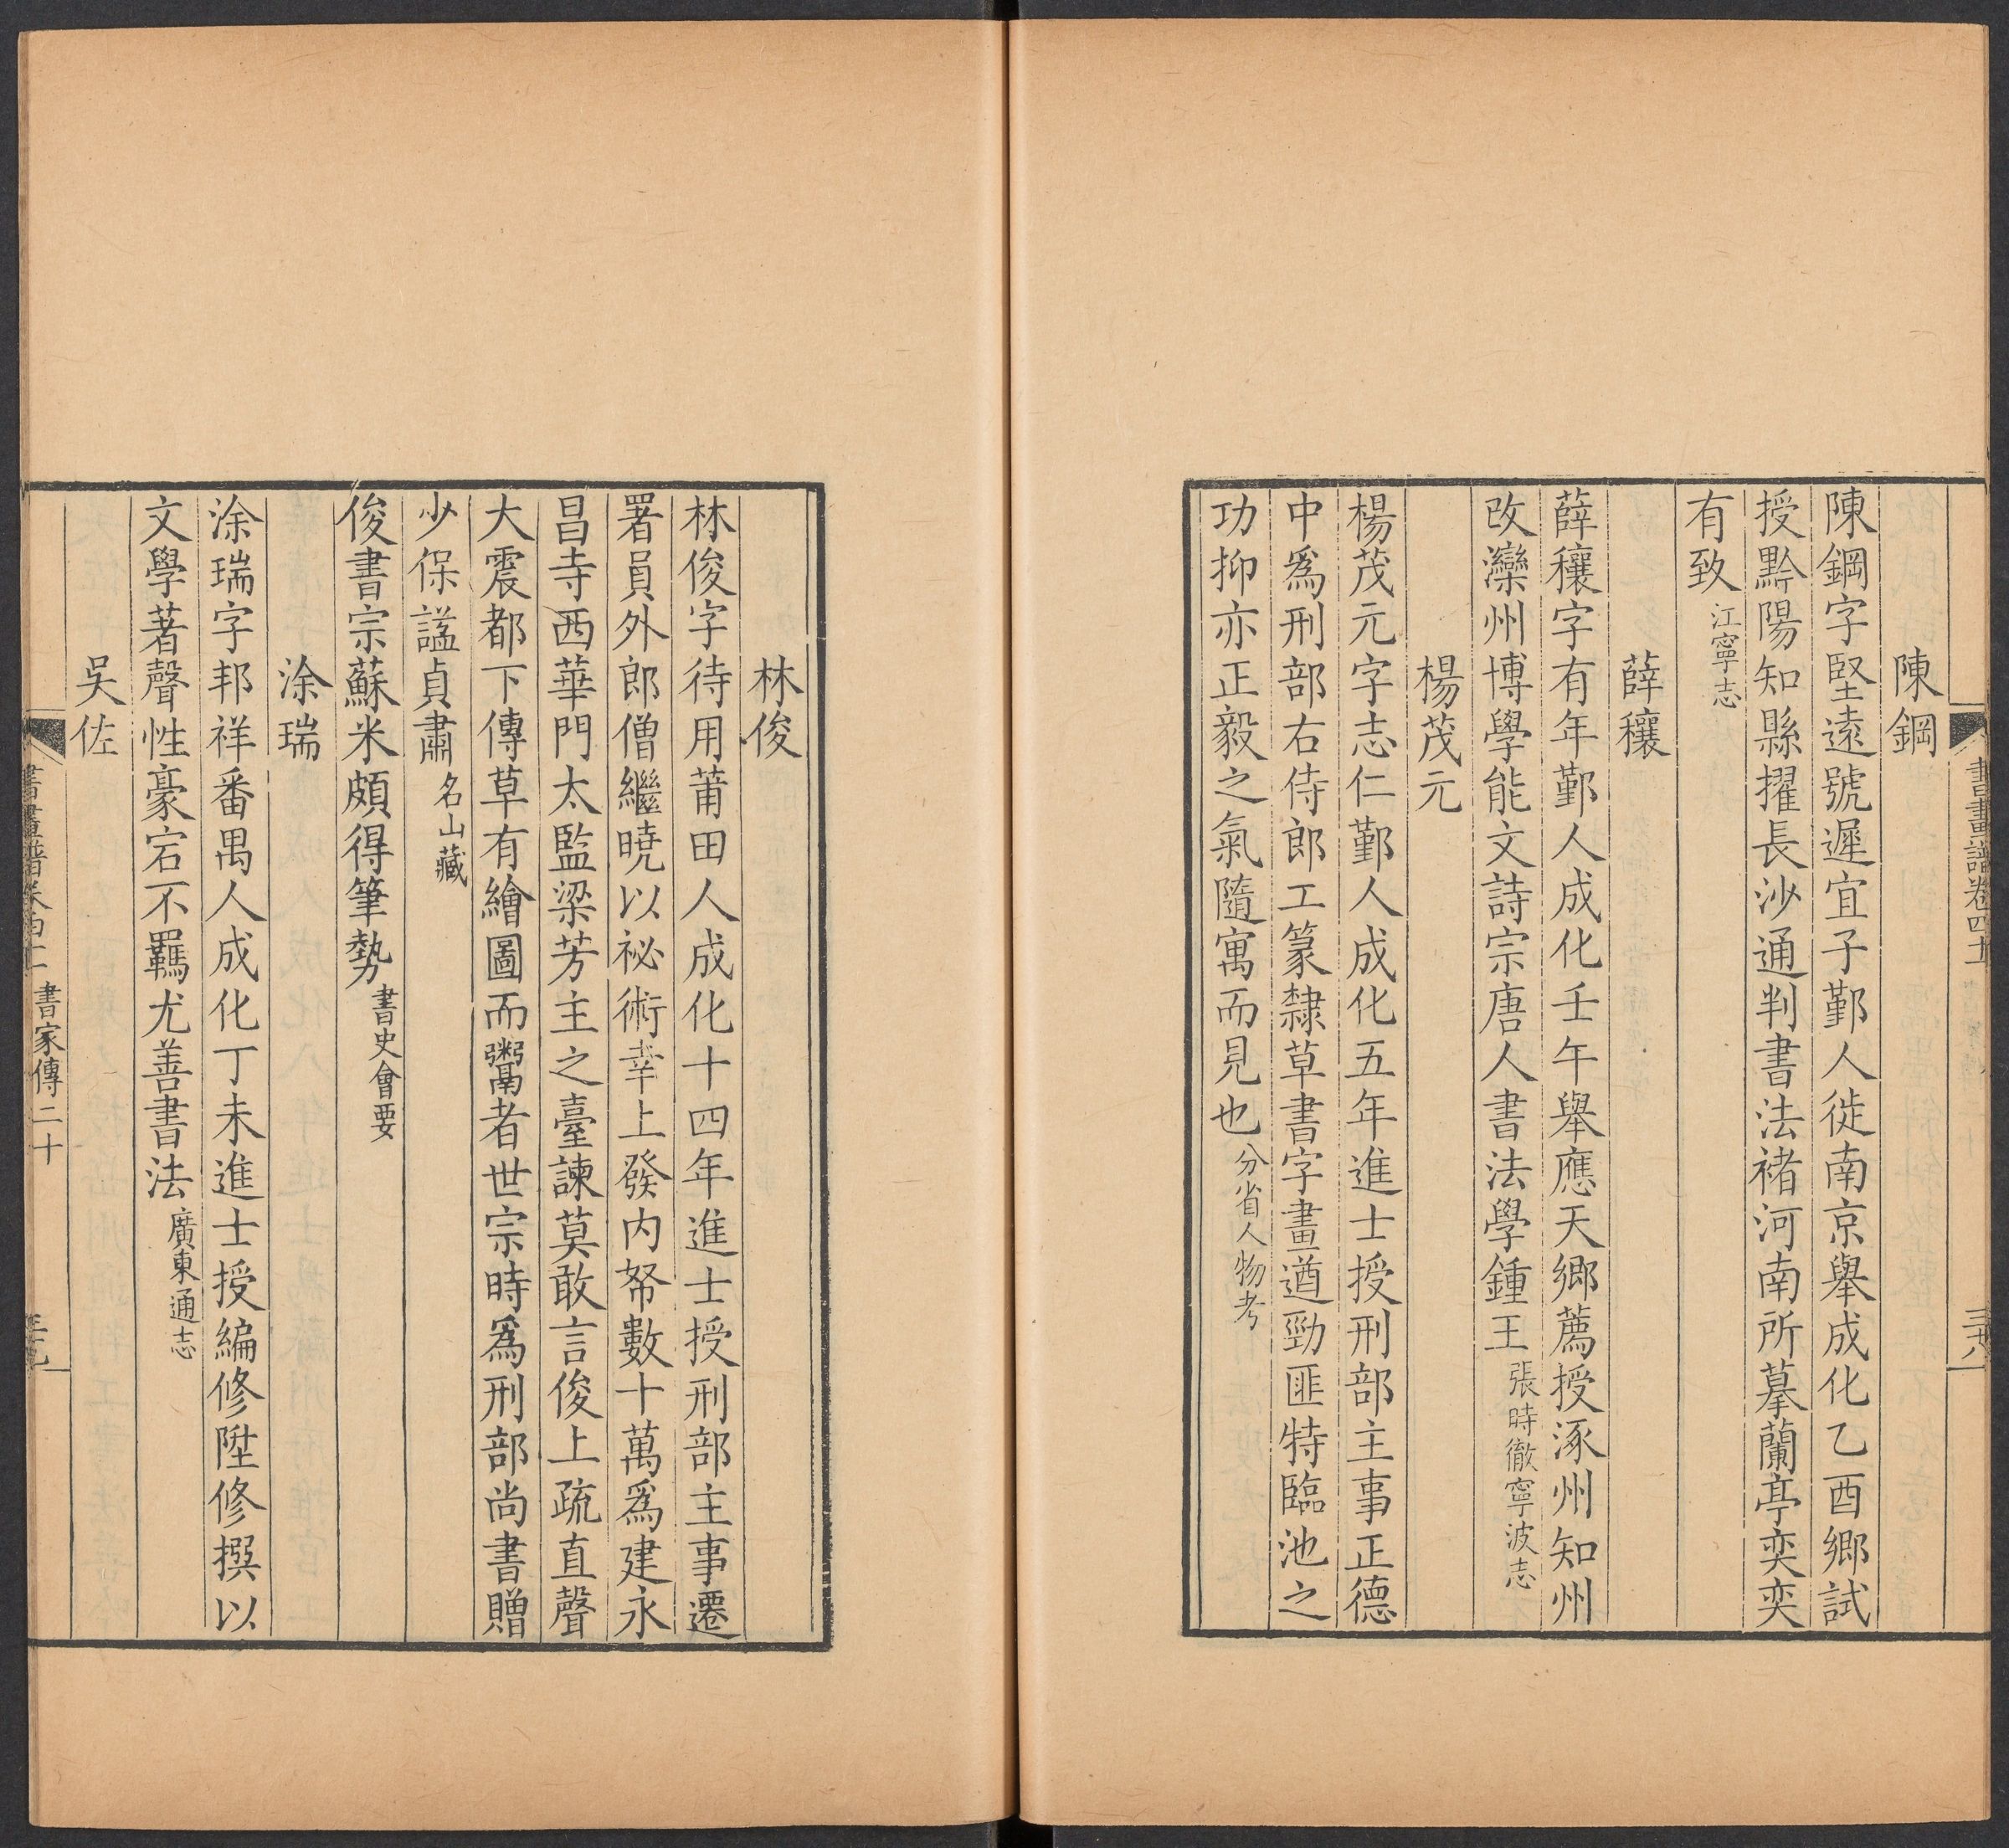 陳鋼
陳鋼字堅遠號遲宜子鄞人徙南京舉成化乙酉鄉試
授黔陽知縣擢長沙通判書法褚河南所摹蘭亭奕奕
有致江寧志
薛穰
薛穰字有年鄞人成化壬午舉應天鄉薦授涿州知州
改灤州博學能文詩宗唐人書法學鍾王張時徹寧波志
楊茂元
楊茂元字志仁鄞人成化五年進士授刑部主事正德
中爲刑部右侍郎工篆隸草書字畫遒勁匪特臨池之
功抑亦正毅之氣隨寓而見也分省人物考
林俊
林俊字待用莆田人成化十四年進士授刑部主事遷
署員外郎僧繼曉以祕術幸上發内帑數十萬爲建永
昌寺西華門太監梁芳主之臺諫莫敢言俊上疏直聲
大震都下傳草有繪圖而鬻者世宗時爲刑部尚書贈
少保諡貞肅名山藏
俊書宗蘇米頗得筆勢書史會要
涂瑞
涂瑞字邦祥番禺人成化丁未進士授編修陞修撰以
文學著聲性豪宕不羈尤善書法廣東通志
吳佐
書畫譜卷四十
三十八
書家傳二十